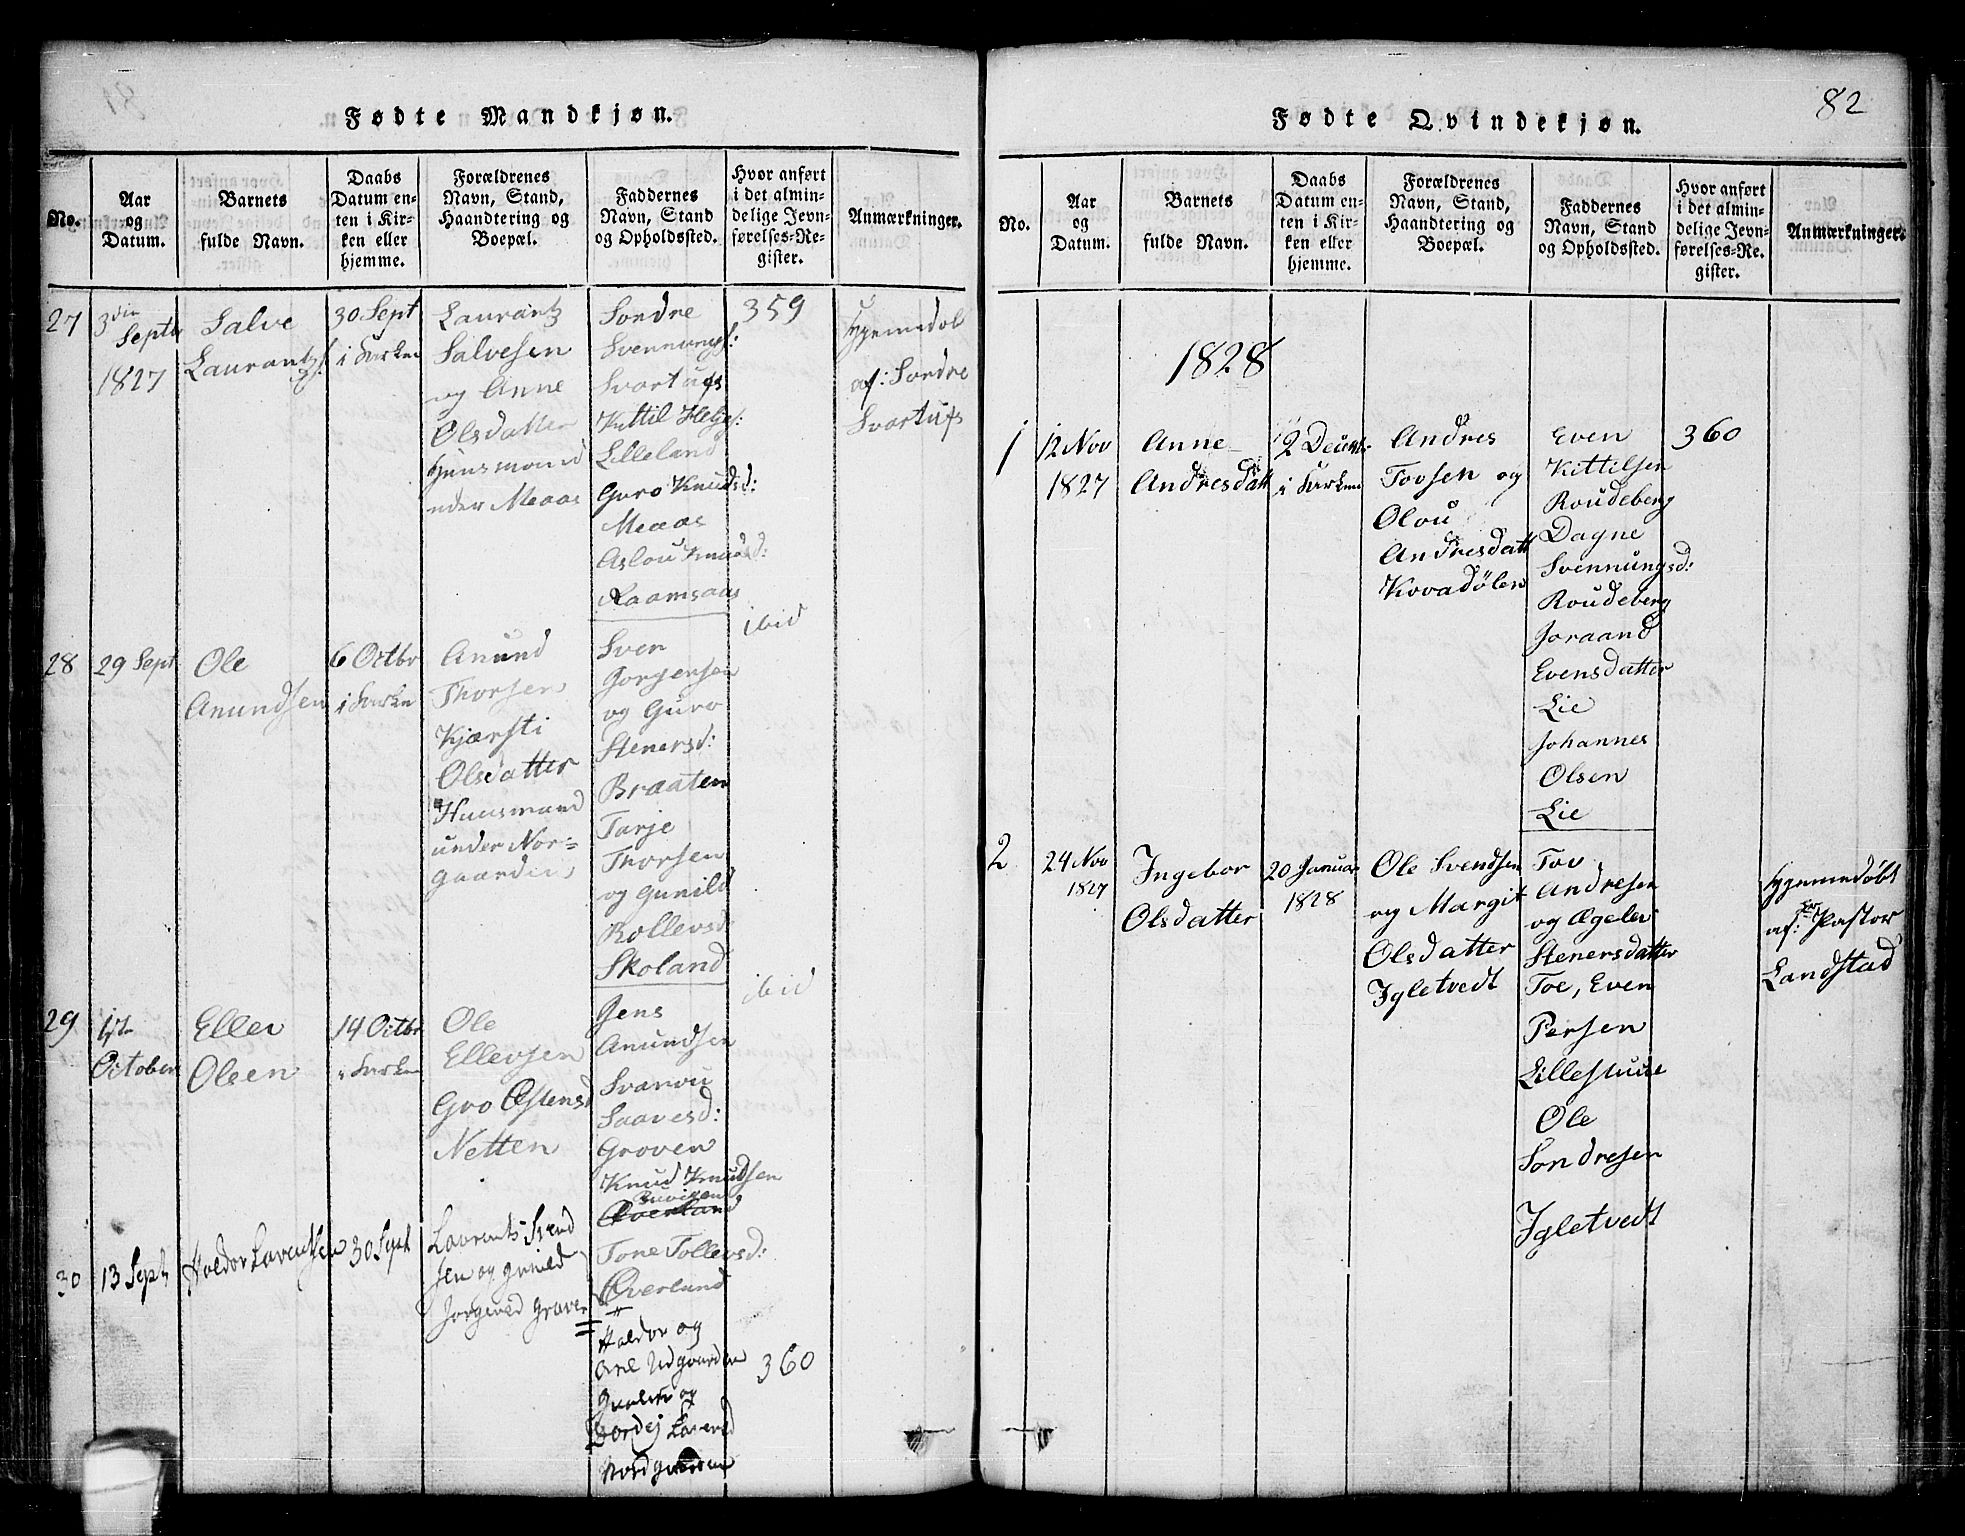 Fødte Mandkjøn.
No.
Aar
og
Datum.
Barnets
fulde Navn.
Daabs
Datum en-
ten i Kir-
ken eller
hjemme.
Forældrenes
Navn, Stand,
Haandtering og
Boepæl.
Faddernes
Navn, Stand
og Opholdssted.
Hvor anført
i det almin-
delige Jevn-
førelses-Re-
gister.
Anmærkninger.
27
3die
Septbr
1827
Salve
Laurantzs:
30 Sept
i Kirken
Laurantz
Salvesen
og Anne
Olsdatter
Huusmand
under Meaas
Sondre
Svennungs:
Svartufs
Kittil Helges:
Lilleland
Guro Knudsd:
Meaas
Aslou Knudsd:
Raamsaas
359
Hjemmedøb
af: Sondre
Svartufs
28
29 Sept
Ole
Anundsen
6 Octbr
i Kirken
Anund
Thorsen
Kjærsti
Olsdatter
Huusmand
under Nor-
gaarden
Sven
Jorgensen
og Guro
Stenersd:
Braaten
Tarje
Thorsen
og Gunild
Rollevsd
Skoland
ibid
29
1ste
October
Ellev
Olsen
14 Octbr
i Kirken
Ole
Ellevsen
Gro Østensd
Netten
Jens
Anundsen
Svanou
Saavesd:
Groven
Knud Knudsen
Overland
Tone Tollevsd:
Overland
ibid
30
13 Sept
Haldor Laventsen
30 Sept
Lavrants Svend
sen og Gunild
Jorgensd Graver
Haldor og
Anl Udgaarden
og
Lavensd
Nordgaarden
360
82
Fødte Qvindekjøn.
No.
Aar
og
Datum.
Barnets
fulde Navn.
Daabs
Datum en-
ten i Kir-
ken eller
hjemme.
Forældrenes
Navn, Stand,
Haandtering og
Boepæl.
Faddernes
Navn, Stand
og Opholdssted.
Hvor anført
i det almin-
delige Jevn-
førelses-Re-
gister.
Anmærkninger.
1828
1
12 Nov
1827
Anne
Andresdatt
2 Decemb:
i Kirken
Andres
Tovsen og
Olou
Andresdatt
Kovadølen
Even
Kittilsen
Roudeberg
Dagne
Svennungsd:
Roudeberg
Joraand
Evensdatter
Lie
Johannes
Olsen
Lie
360
2
24 Nov
1827
Ingebor
Olsdatter
20 Januar
1828
Ole Svendsen
og Margit
Olsdatter
Igletvedt
Tov
Andresen
og Ægelev
Stenersdatter
Toe, Even
Persen
Lillestuue
Ole
Sondresen
Igletvedt
Hjemmedøbt
af: Hr Pastor
Landstad